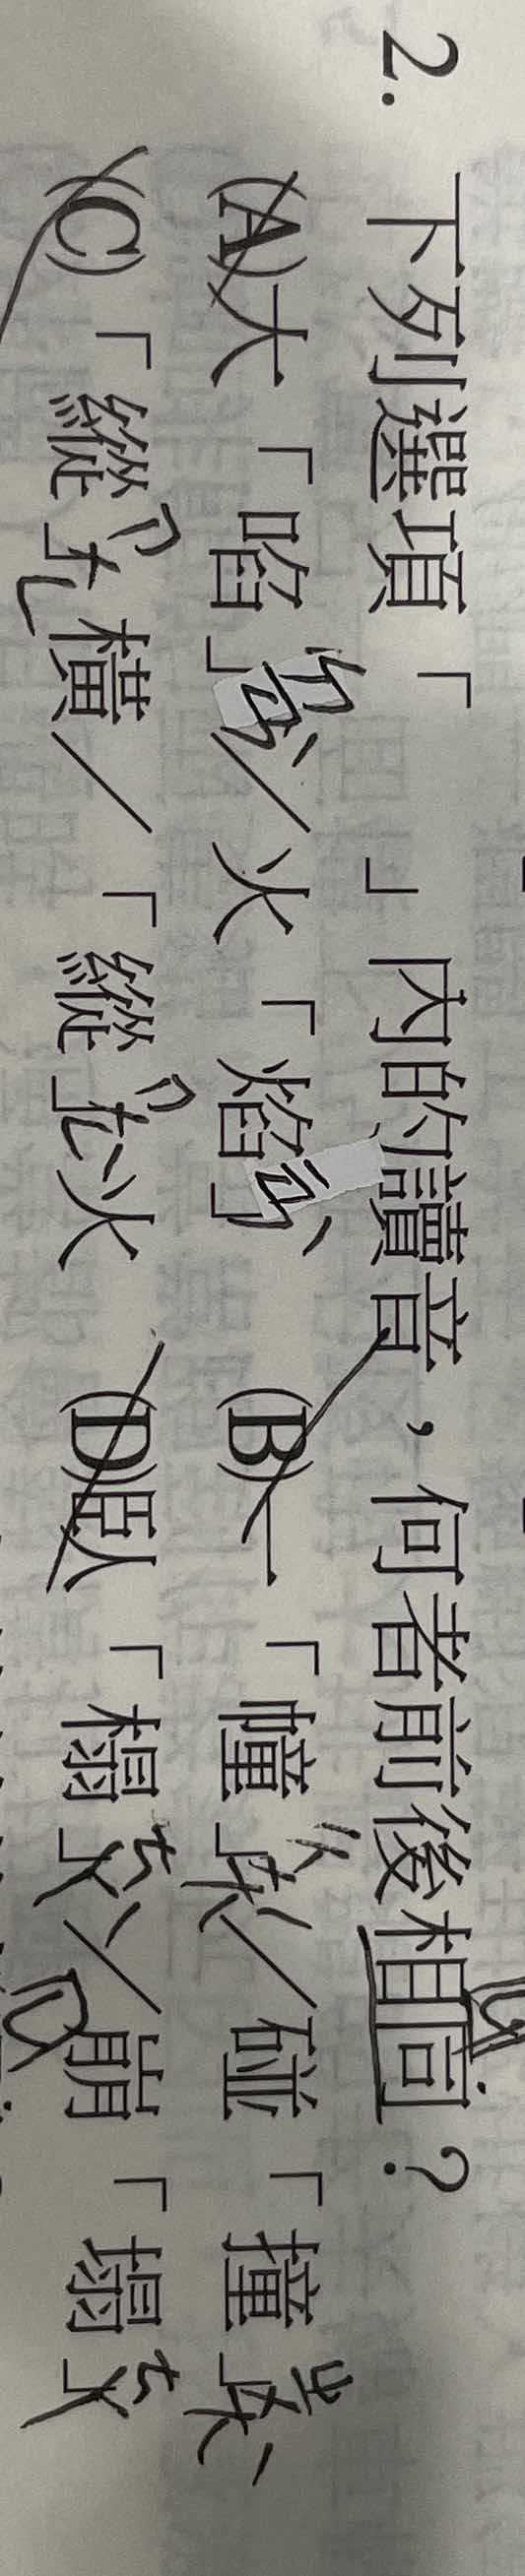 2. 下列選項「　　」內的讀音，何者前後相同？
(A)大「啗」ㄉㄢˋ／火「焰」ㄧㄢˋ　(B)一「幢」ㄔㄨㄤˊ／碰「撞」ㄓㄨㄤˋ
(C)「縱」ㄗㄨㄥ橫／「縱」ㄗㄨㄥˋ火　(D)臥「榻」ㄊㄚˋ／崩「塌」ㄊㄚ